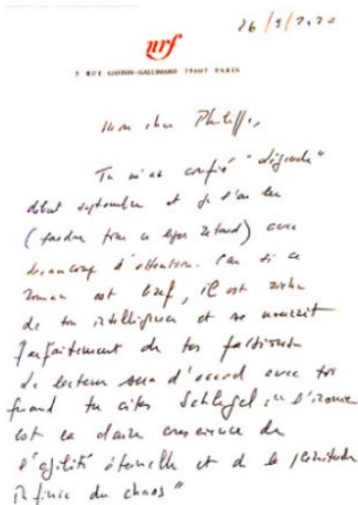 26/9/2020
nrf
5 RUE GASTON-GALLIMARD 75007 PARIS
Mon cher Philippe,
Tu m'as confié "Légende"
début septembre et je l'ai lu
(pardon pour ce léger retard) avec
beaucoup d'attention. Car si ce
roman est bref, il est riche
de ton intelligence et se nourrit
parfaitement de tes passions
Le lecteur sera d'accord avec toi
quand tu cites Schlegel : "l'ironie
est la claire conscience de
l'agilité éternelle et de la plénitude
infinie du chaos"